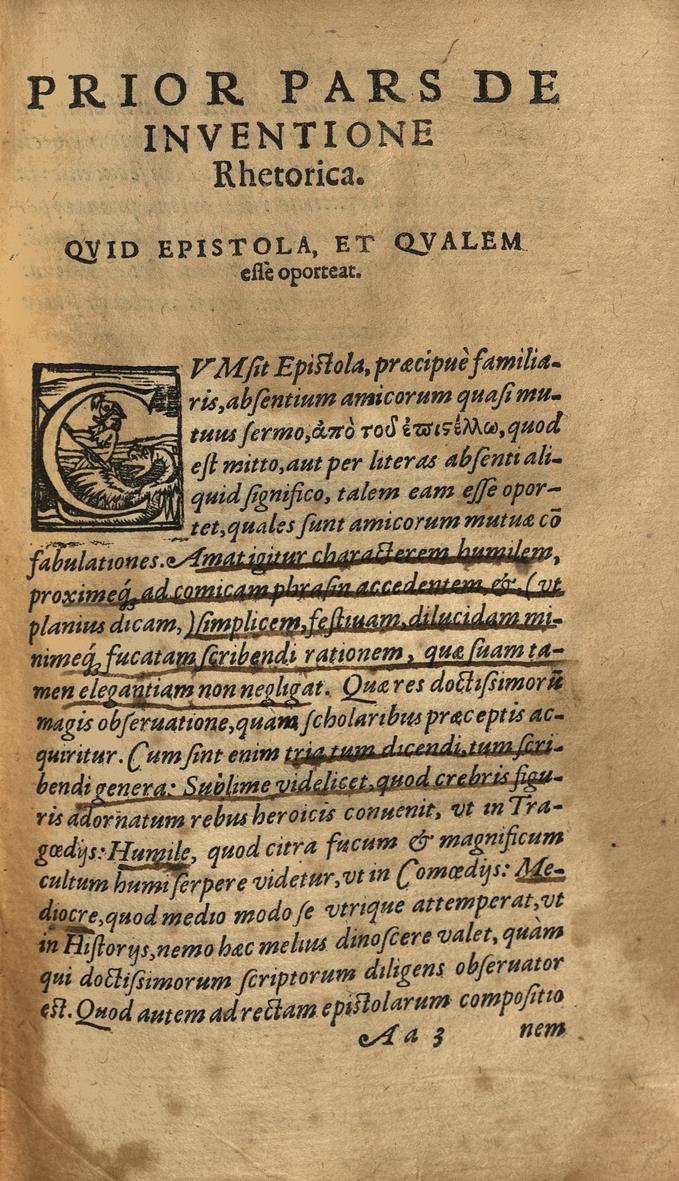 PRIOR PARS DE
INVENTIONE
Rhetorica.
QVID EPISTOLA, ET QVALEM
eſſe oporteat.
CVM ſit Epiſtola, præcipuè familia-
ris, abſentium amicorum quaſi mu-
tuus ſermo, ἀπὸ τοῦ ἐπιςέλλω, quod
eſt mitto, aut per literas abſenti ali-
quid ſignifico, talem eam eſſe opor-
tet, quales ſunt amicorum mutuæ cō
fabulationes. Amat igitur characterem humilem,
proximeq́; ad comicam phraſin accedentem, &, (vt
planius dicam,) ſimplicem, feſtiuam, dilucidam mi-
nimeq́; fucatam ſcribendi rationem, quæ ſuam ta-
men elegantiam non negligat. Quæ res doctiſsimorū
magis obſeruatione, quam ſcholaribus præceptis ac-
quiritur. Cum ſint enim tria tum dicendi, tum ſcri-
bendi genera: Sublime videlicet, quod crebris figu-
ris adornatum rebus heroicis conuenit, vt in Tra-
gœdijs: Humile, quod citra fucum & magnificum
cultum humi ſerpere videtur, vt in Comœdijs: Me-
diocre, quod medio modo ſe vtrique attemperat, vt
in Hiſtorijs, nemo hæc melius dinoſcere valet, quàm
qui doctiſsimorum ſcriptorum diligens obſeruator
eſt. Quod autem ad rectam epiſtolarum compoſitio
Aa 3 nem